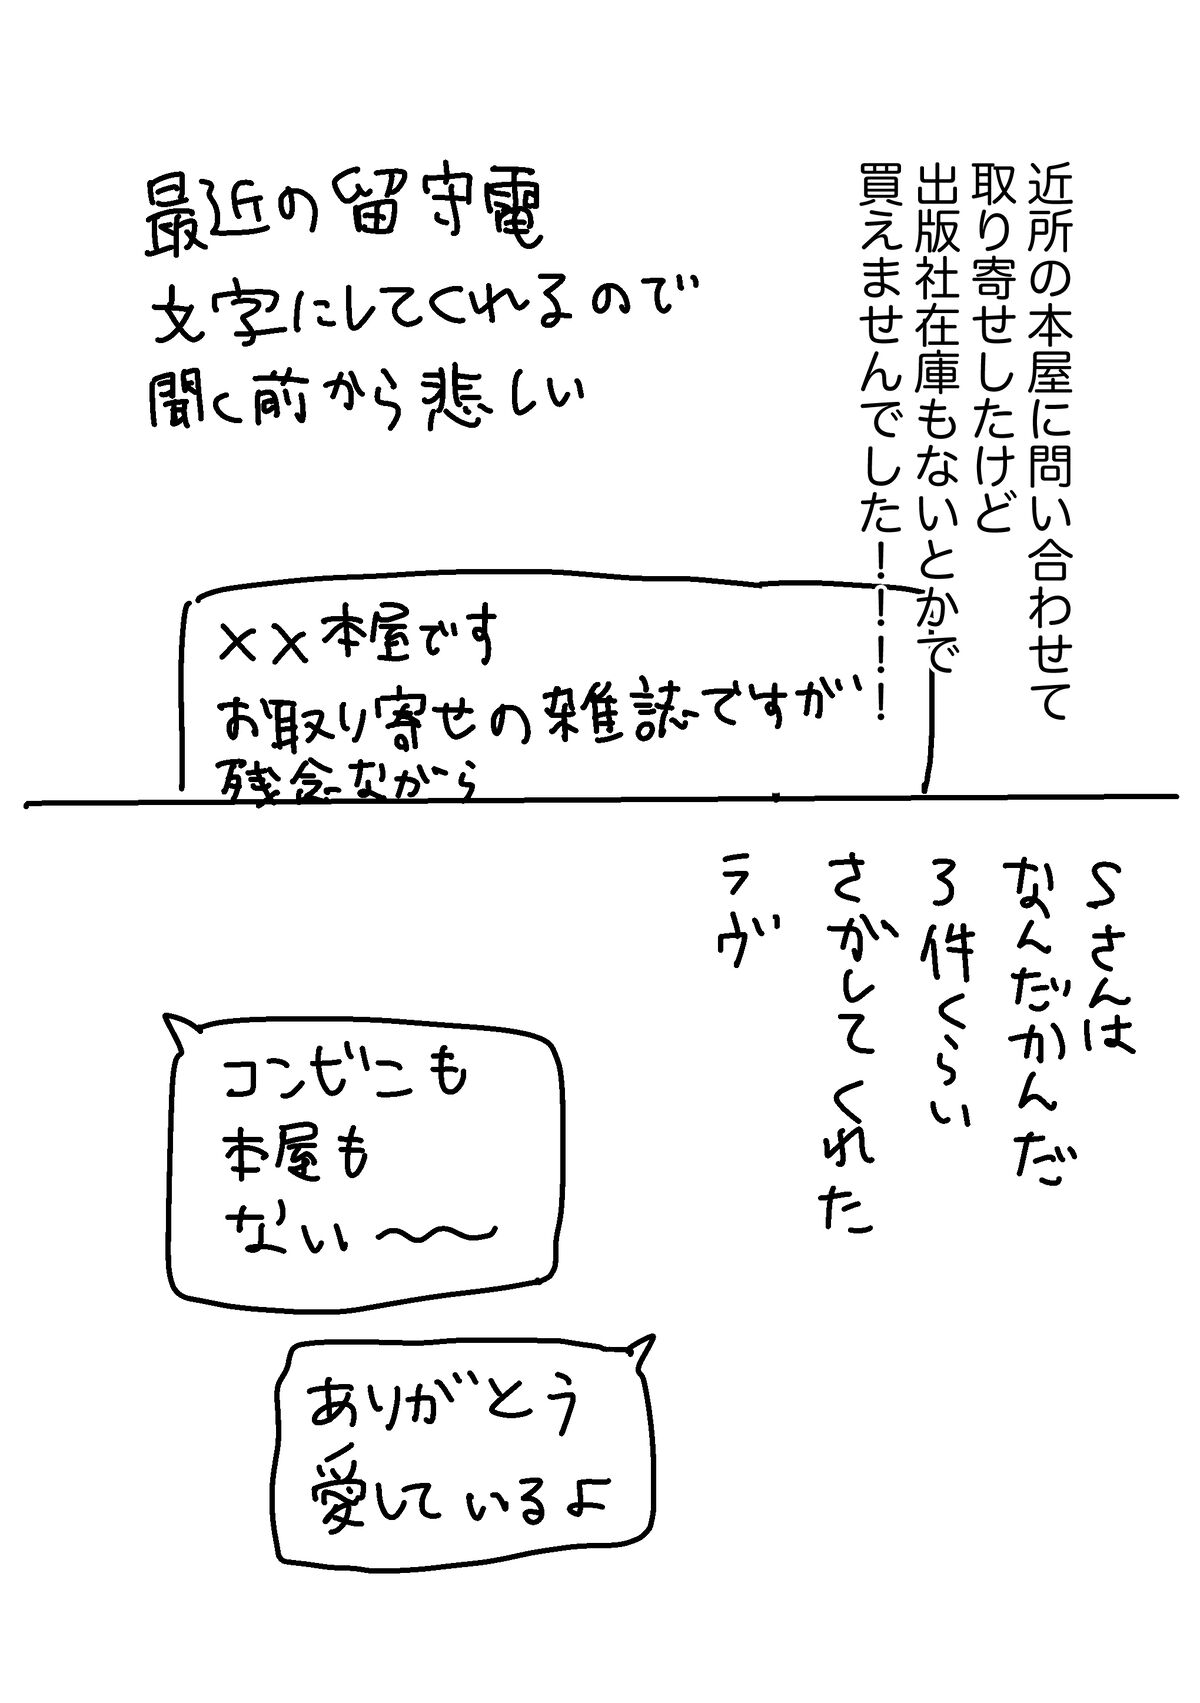 近所の本屋に問い合わせて
取り寄せしたけど
出版社在庫もないとかで
買えませんでした！！！！
最近の留守電
文字にしてくれるので
聞く前から悲しい
××本屋です
お取り寄せの雑誌ですが
残念ながら
Sさんは
なんだかんだ
3件くらい
さがしてくれた
ラヴ
コンビニも
本屋も
ない〜〜
ありがとう
愛しているよ